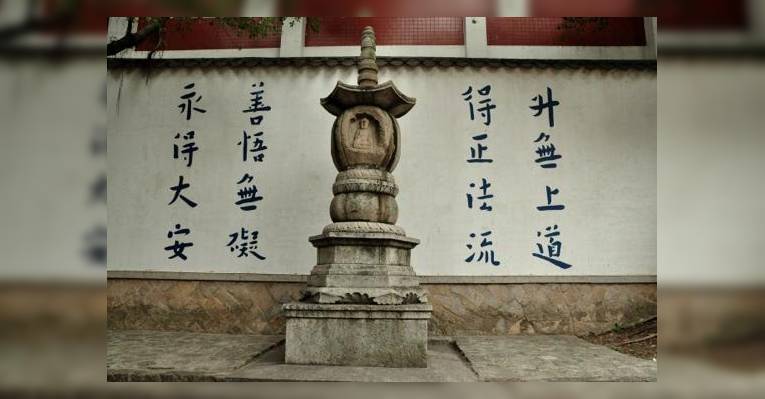 升無上道
得正法流
善悟無礙
永得大安